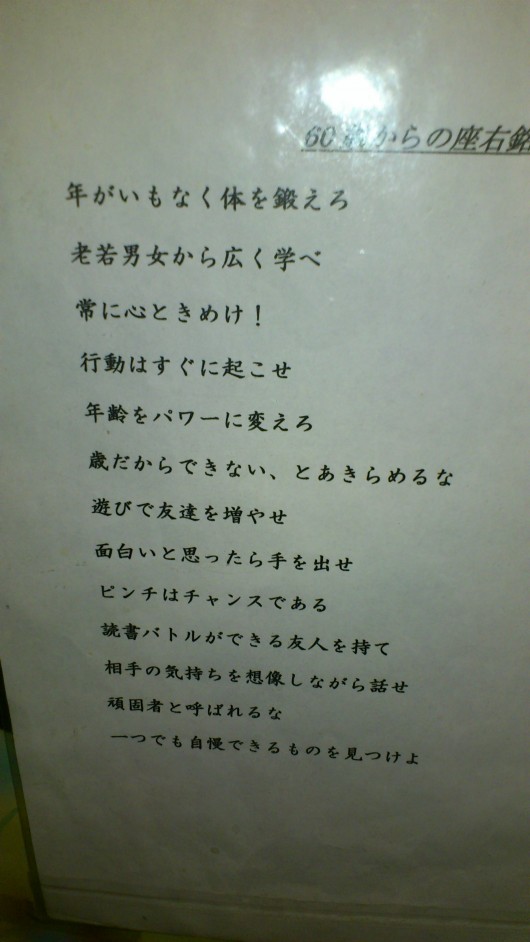 60歳からの座右銘
年がいもなく体を鍛えろ
老若男女から広く学べ
常に心ときめけ！
行動はすぐに起こせ
年齢をパワーに変えろ
歳だからできない、とあきらめるな
遊びで友達を増やせ
面白いと思ったら手を出せ
ピンチはチャンスである
読書バトルができる友人を持て
相手の気持ちを想像しながら話せ
頑固者と呼ばれるな
一つでも自慢できるものを見つけよ